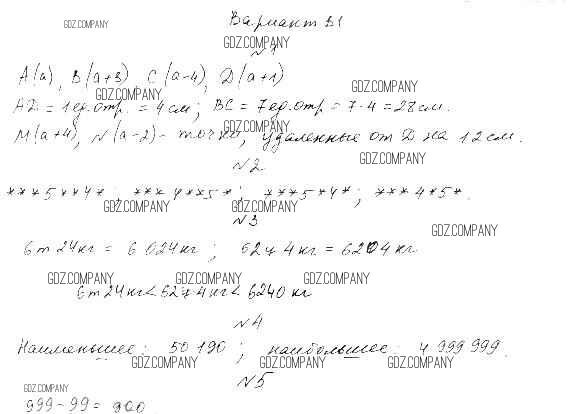 GDZ.COMPANY
Вариант Б1
GDZ.COMPANY
№1
A(a), B(a+3), C(a-4), D(a+1)
GDZ.COMPANY GDZ.COMPANY
AD = 1 ед.отр. = 4 см; BC = 7 ед.отр = 7·4 = 28 см.
GDZ.COMPANY
M(a+4), N(a-2) - точки, удаленные от D на 12 см.
GDZ.COMPANY
№2
***5**4*; ***4**5*; ***5*4*; ***4*5*.
GDZ.COMPANY GDZ.COMPANY
№3
GDZ.COMPANY
6т 24кг = 6 024кг; 62ц 4кг = 6204кг
GDZ.COMPANY GDZ.COMPANY GDZ.COMPANY
6т 24кг < 62ц 4кг < 6240 кг
№4
Наименьшее: 50 190; наибольшее: 4 999 999.
GDZ.COMPANY GDZ.COMPANY GDZ.COMPANY
№5
GDZ.COMPANY
999 - 99 = 900